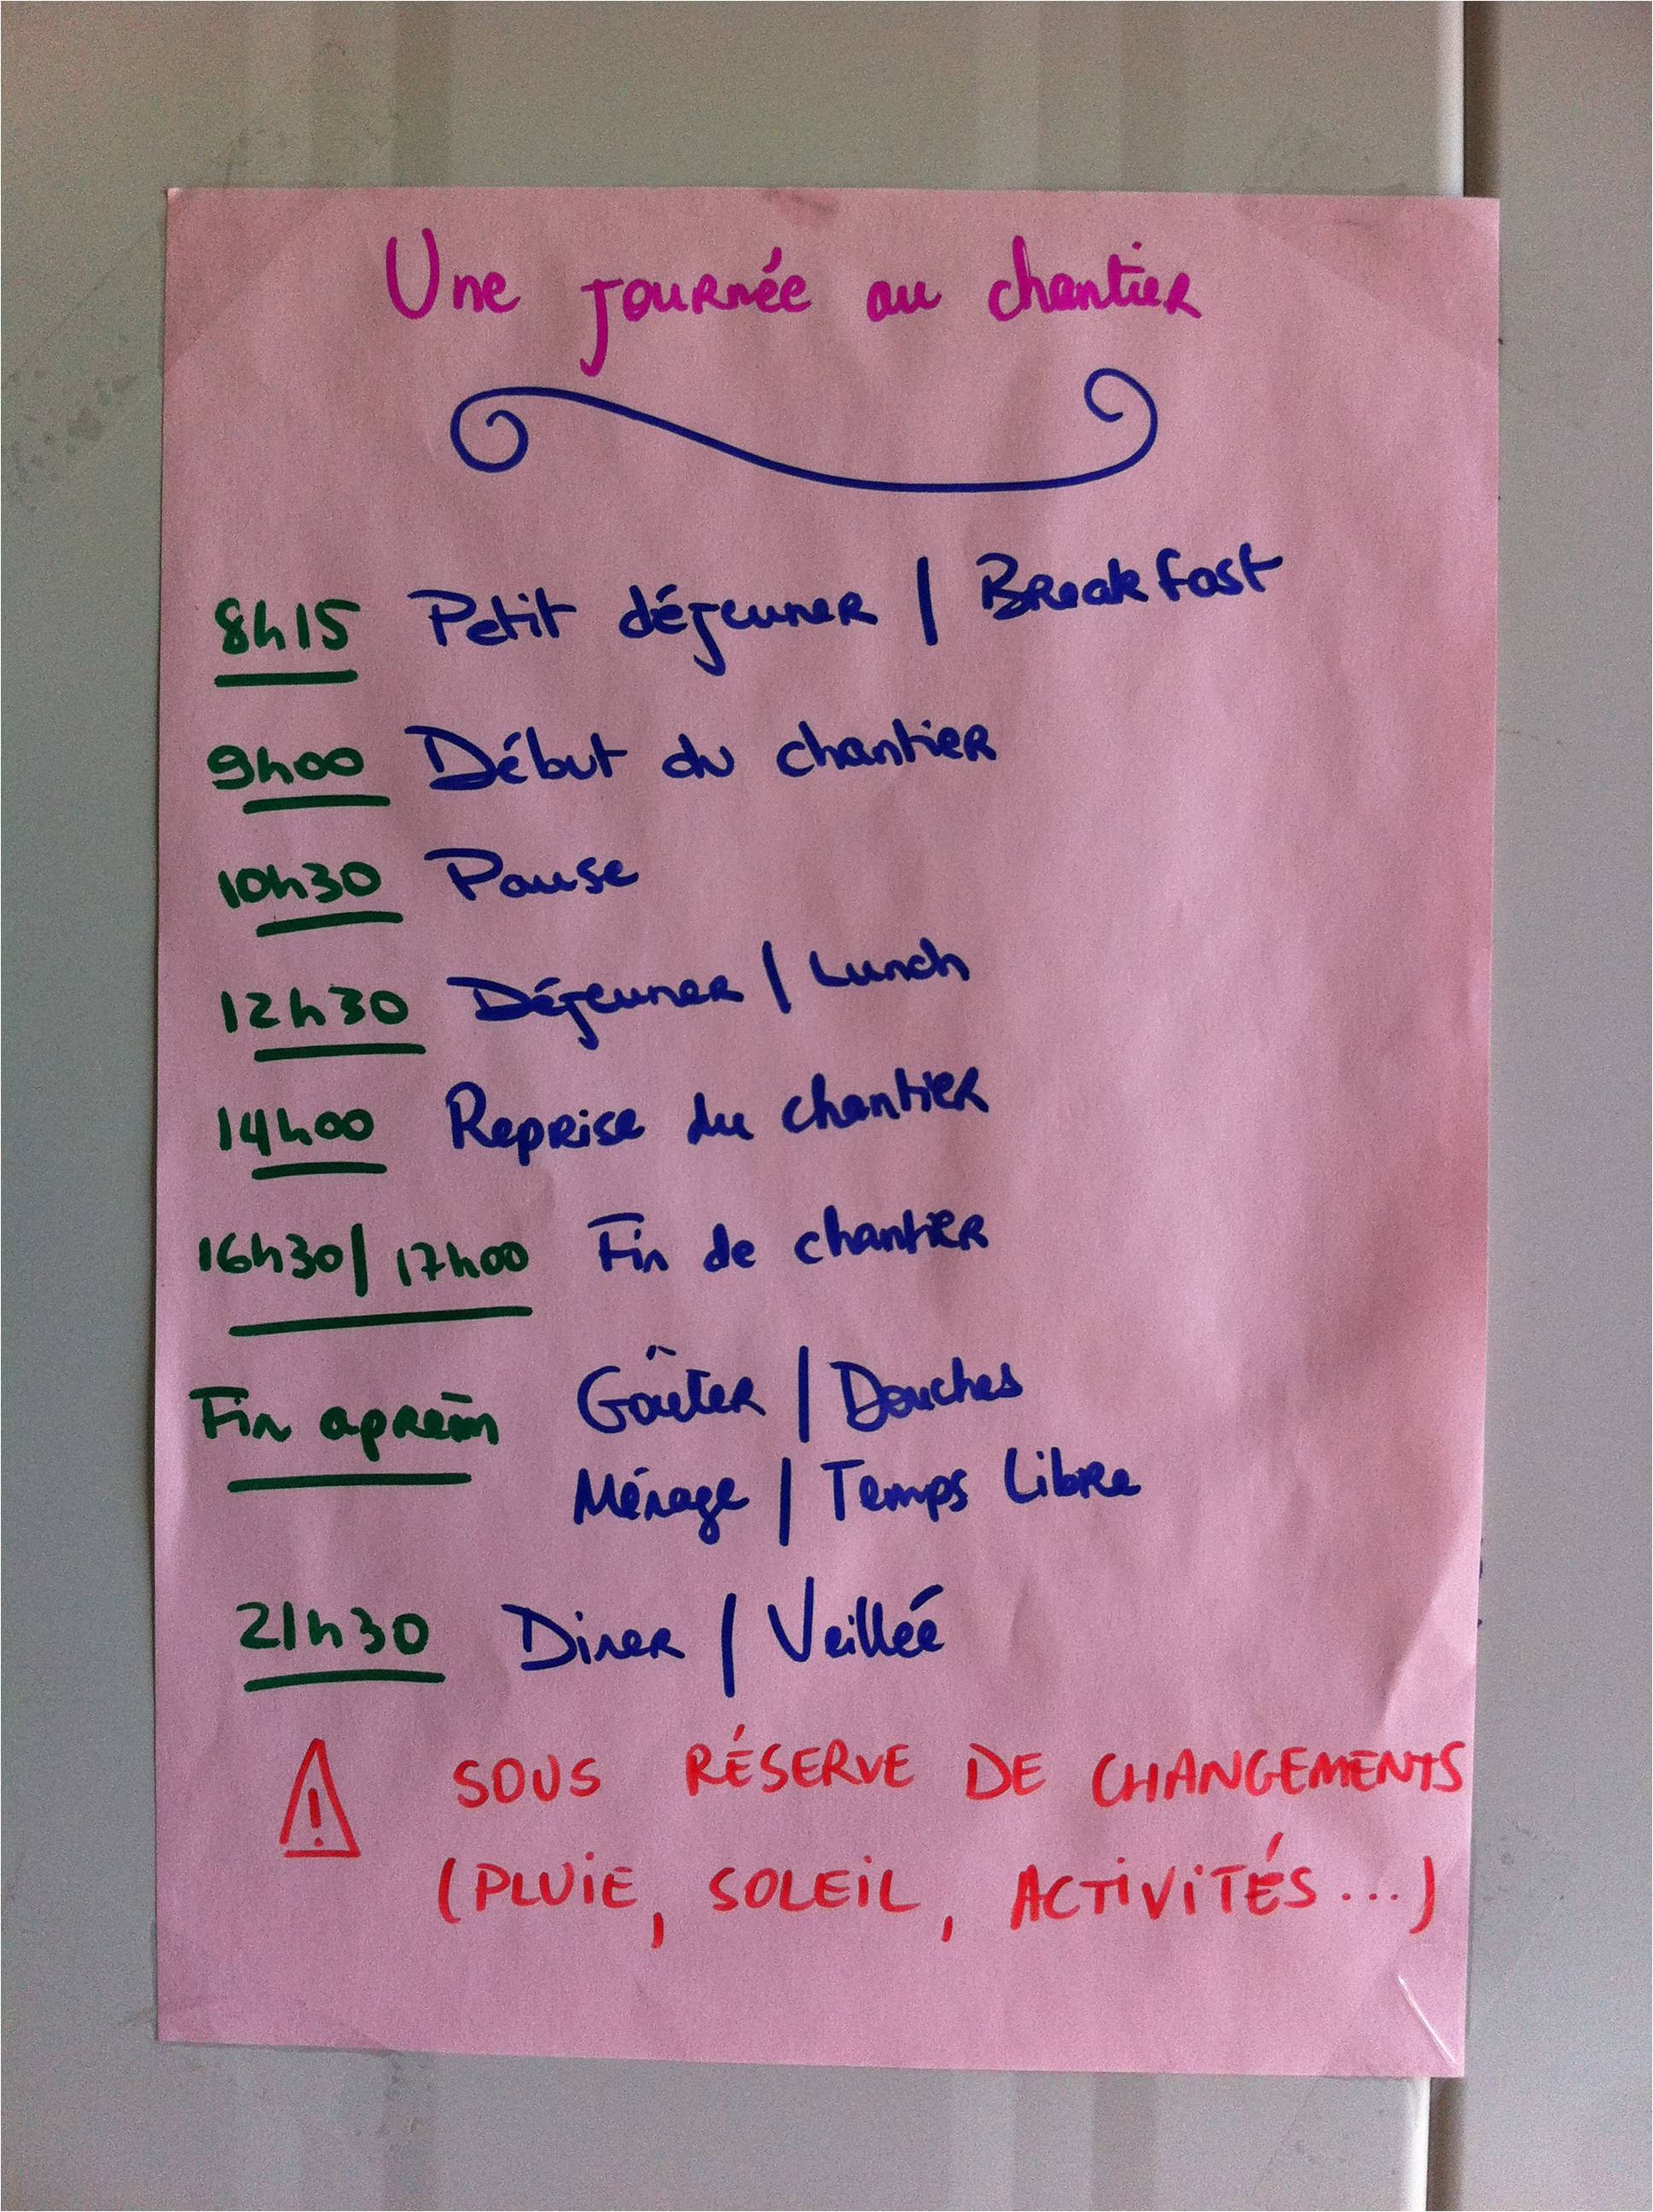 Une journée au chantier
8h15 Petit déjeuner / Breakfast
9h00 Début du chantier
10h30 Pause
12h30 Déjeuner / Lunch
14h00 Reprise du chantier
16h30 / 17h00 Fin de chantier
Fin aprèm Goûter / Douches
Ménage / Temps Libre
21h30 Diner / Veilleé
! SOUS RÉSERVE DE CHANGEMENTS
(PLUIE, SOLEIL, ACTIVITÉS...)